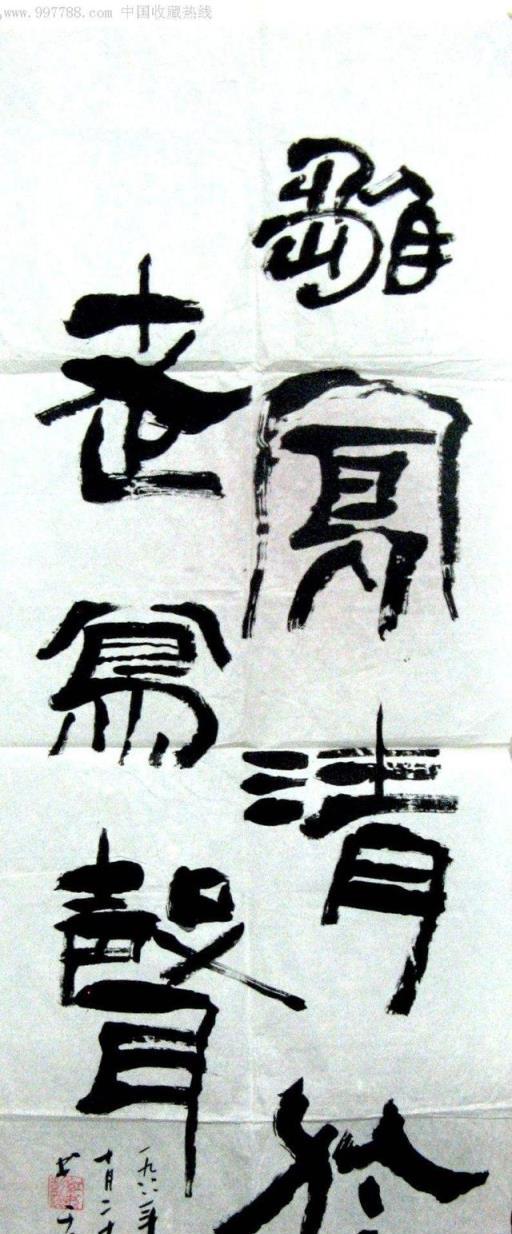 www.997788.com 中国收藏热线
雛鳳清於
老鳳聲
十月二十